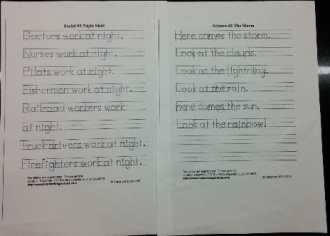 Social #2 Night Shift
Doctors work at night.
Nurses work at night.
Pilots work at night.
Fishermen work at night.
Railroad workers work
at night.
Truck drivers work at night.
Firefighters work at night.
Science #2 The Storm
Here comes the storm.
Look at the clouds.
Look at the lightning.
Look at the rain.
Here comes the sun.
Look at the rainbow!